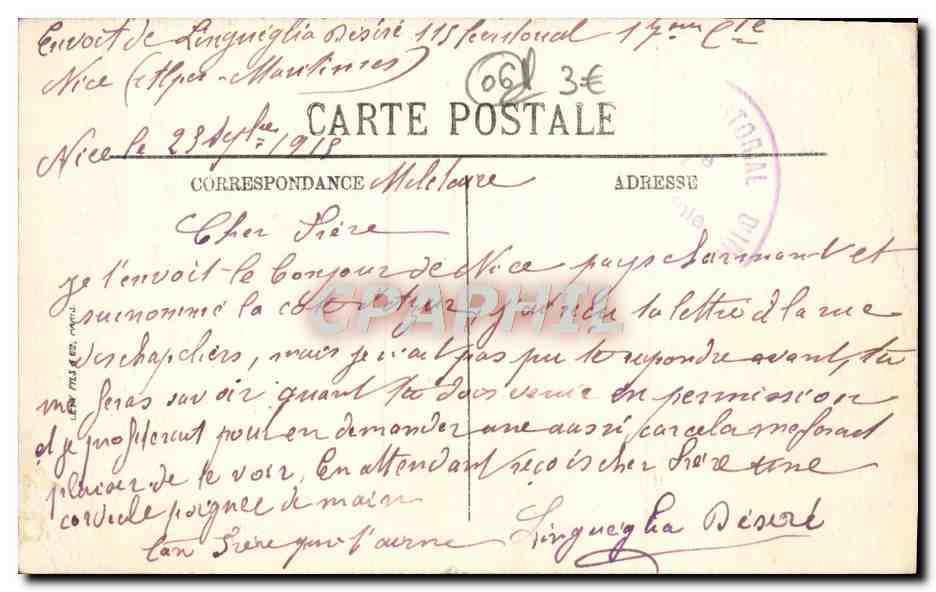 Envoit de Lingueglia Désiré 115 territorial 17me Cie
Nice (Alpes-Maritimes)
06 3€
CARTE POSTALE
Nice le 23 1915
CORRESPONDANCE Militaire ADRESSE
TORIAL D'IN
Cher Frère
je t'envoit le bonjour de Nice pays charmant et
surnommé la cote d'azur, j'ai reçu ta lettre à la rue
des chapeliers, mais je n'ait pas pu te repondre avant, tu
me feras savoir quant tu dois venir en permission
et je profiterait pour en demander une aussi, car cela me ferait
plaisir de te voir. En attendant reçois cher Frère une
cordiale poignée de main
Ton Frère qui t'aime
Lingueglia Désiré
LEVY FILS & Cie, PARIS
CPAPHIL